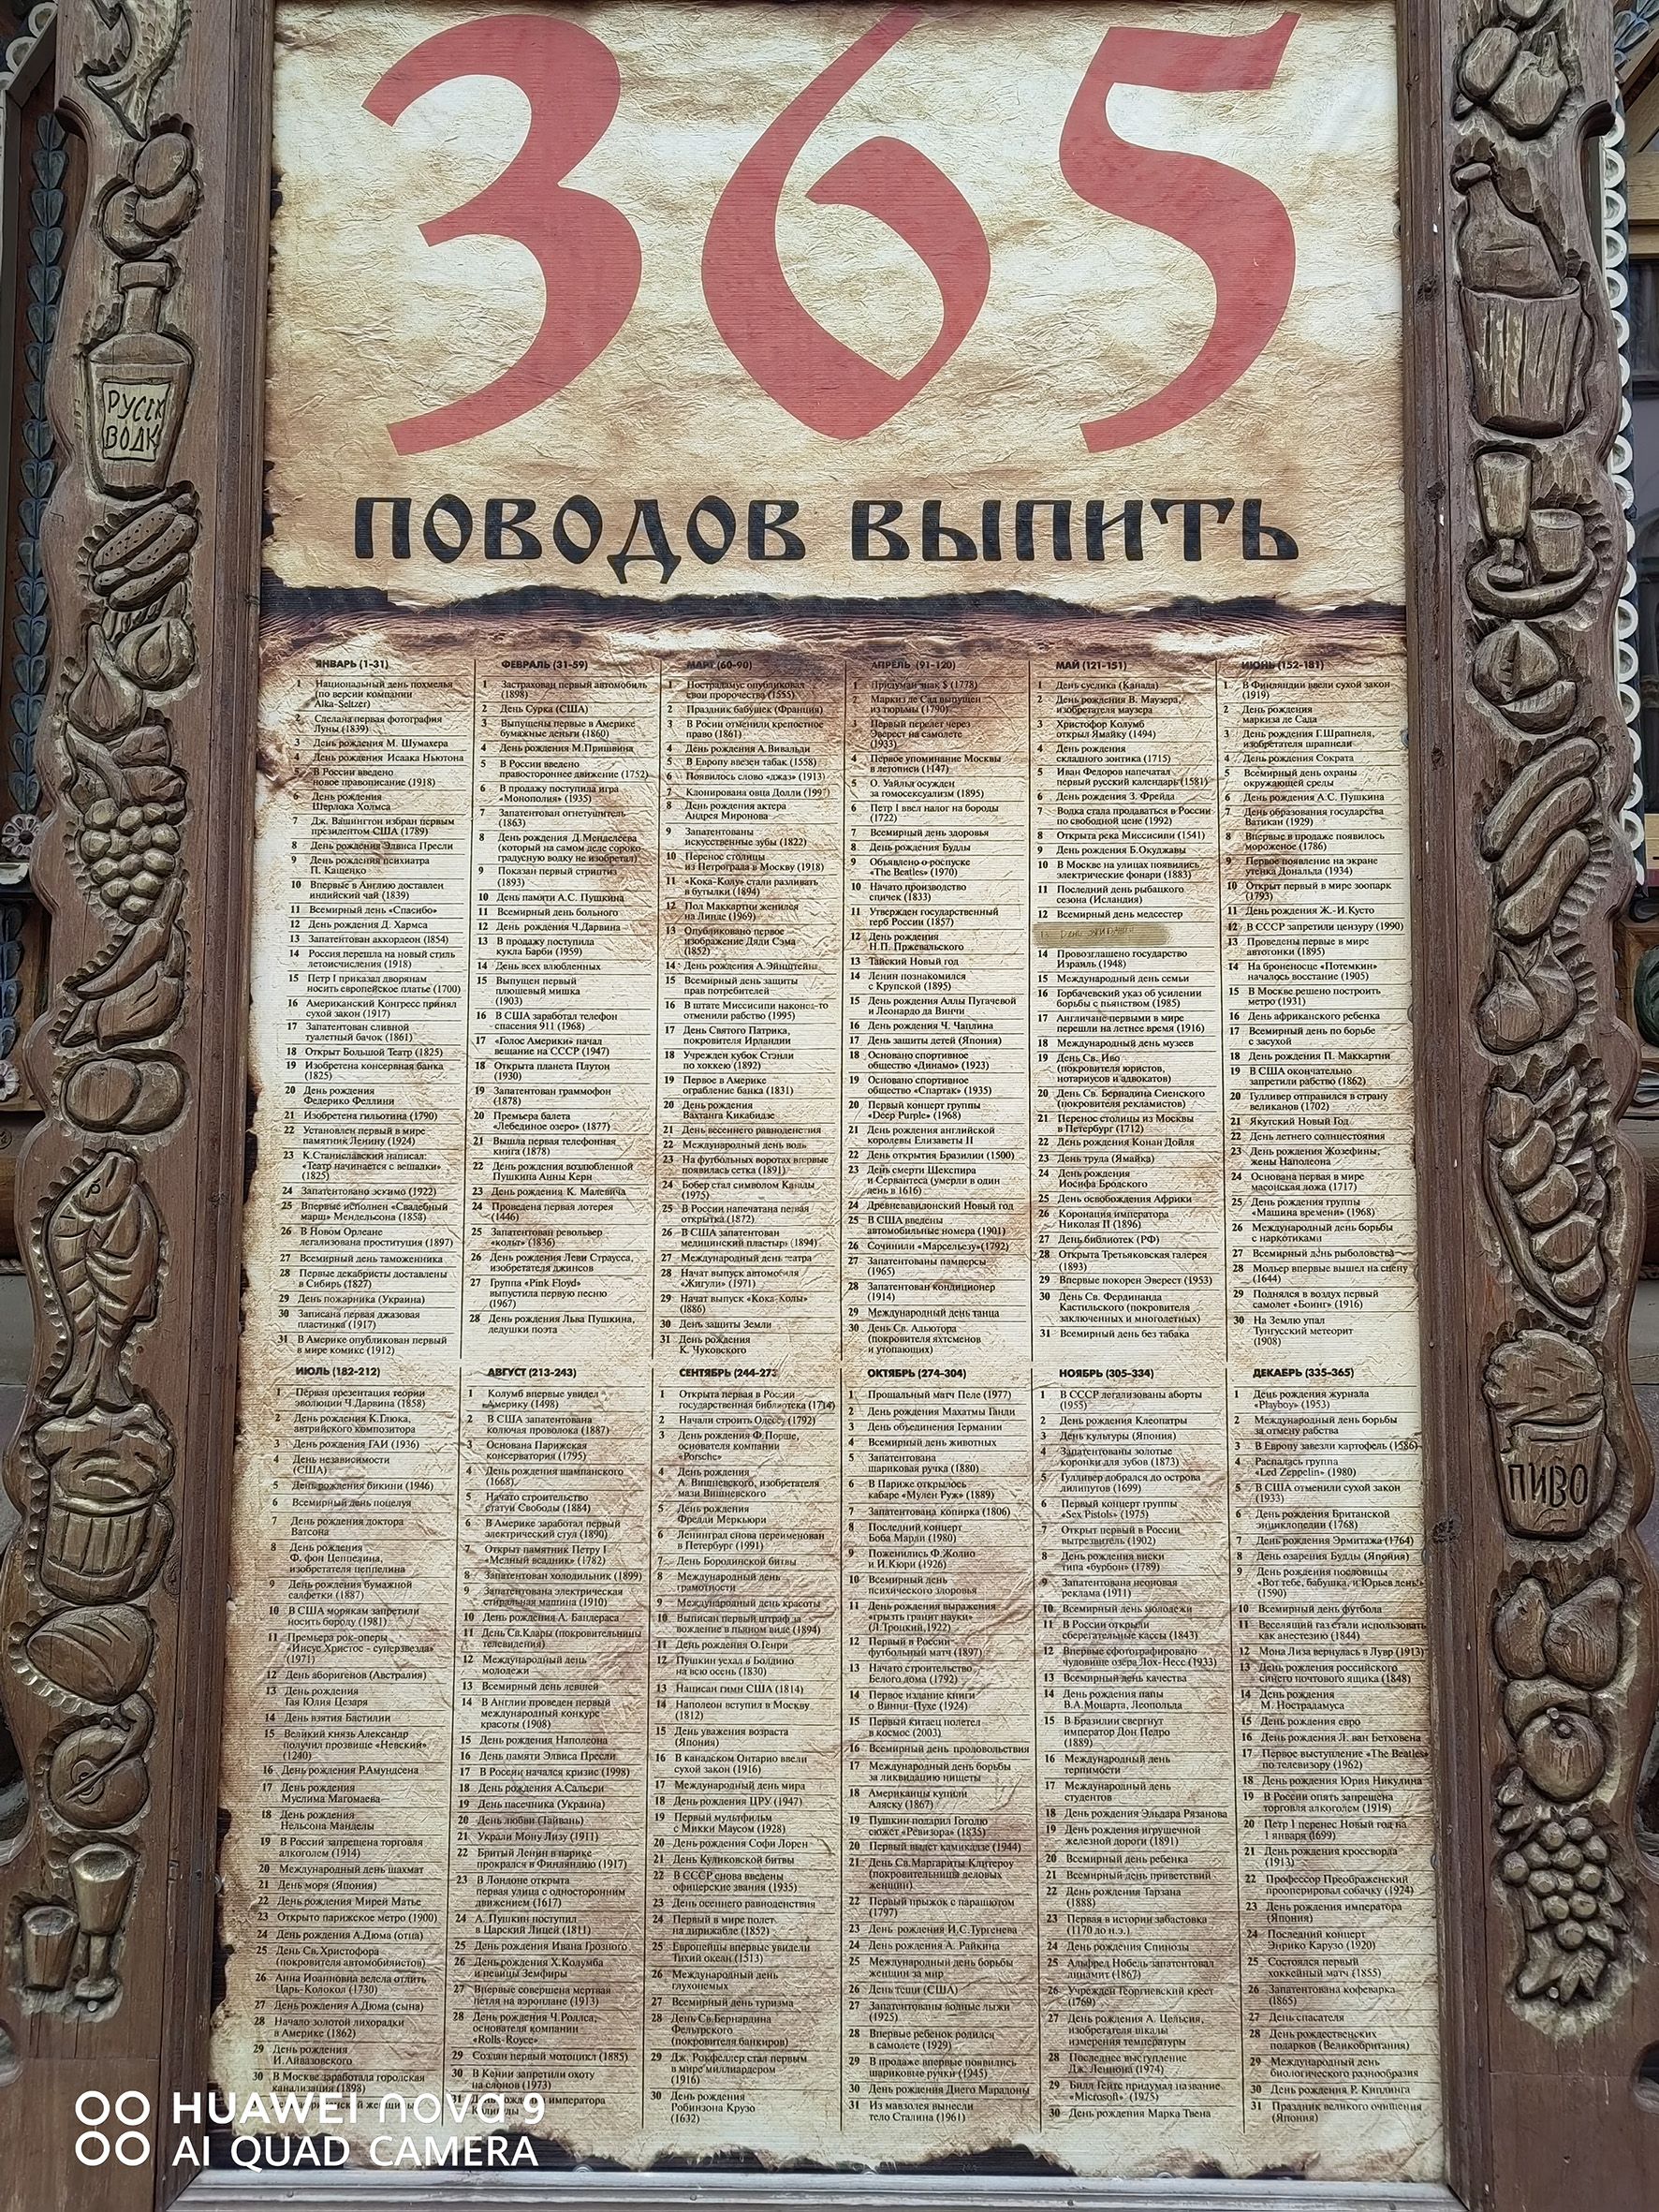 365
ПОВОДОВ ВЫПИТЬ
РУССК
ВОДК
ЯНВАРЬ (1-31)
1 Национальный день похмелья
(по версии компании
Alka-Seltzer)
2 Сделана первая фотография
Луны (1839)
3 День рождения М. Шумахера
4 День рождения Исаака Ньютона
5 В России введено
новое правописание (1918)
6 День рождения
Шерлока Холмса
7 Дж. Вашингтон избран первым
президентом США (1789)
8 День рождения Элвиса Пресли
9 День рождения психиатра
П. Кащенко
10 Впервые в Англию доставлен
индийский чай (1839)
11 Всемирный день «Спасибо»
12 День рождения Д. Хармса
13 Запатентован аккордеон (1854)
14 Россия перешла на новый стиль
летоисчисления (1918)
15 Петр I приказал дворянам
носить европейское платье (1700)
16 Американский Конгресс принял
сухой закон (1917)
17 Запатентован сливной
туалетный бачок (1861)
18 Открыт Большой Театр (1825)
19 Изобретена консервная банка
(1825)
20 День рождения
Федерико Феллини
21 Изобретена гильотина (1790)
22 Установлен первый в мире
памятник Ленину (1924)
23 К.Станиславский написал:
«Театр начинается с вешалки»
(1825)
24 Запатентовано эскимо (1922)
25 Впервые исполнен «Свадебный
марш» Мендельсона (1858)
26 В Новом Орлеане
легализована проституция (1897)
27 Всемирный день таможенника
28 Первые декабристы доставлены
в Сибирь (1827)
29 День пожарника (Украина)
30 Записана первая джазовая
пластинка (1917)
31 В Америке опубликован первый
в мире комикс (1912)
ФЕВРАЛЬ (31-59)
1 Застрахован первый автомобиль
(1898)
2 День Сурка (США)
3 Выпущены первые в Америке
бумажные деньги (1860)
4 День рождения М.Пришвина
5 В России введено
правостороннее движение (1752)
6 В продажу поступила игра
«Монополия» (1935)
7 Запатентован огнетушитель
(1863)
8 День рождения Д.Менделеева
(который на самом деле сороко-
градусную водку не изобретал)
9 Показан первый стриптиз
(1893)
10 День памяти А.С. Пушкина
11 Всемирный день больного
12 День рождения Ч.Дарвина
13 В продажу поступила
кукла Барби (1959)
14 День всех влюбленных
15 Выпущен первый
плюшевый мишка
(1903)
16 В США заработал телефон
спасения 911 (1968)
17 «Голос Америки» начал
вещание на СССР (1947)
18 Открыта планета Плутон
(1930)
19 Запатентован граммофон
(1878)
20 Премьера балета
«Лебединое озеро» (1877)
21 Вышла первая телефонная
книга (1878)
22 День рождения возлюбленной
Пушкина Анны Керн
23 День рождения К. Малевича
24 Проведена первая лотерея
(1446)
25 Запатентован револьвер
«кольт» (1836)
26 День рождения Леви Страусса,
изобретателя джинсов
27 Группа «Pink Floyd»
выпустила первую песню
(1967)
28 День рождения Льва Пушкина,
дедушки поэта
МАРТ (60-90)
1 Нострадамус опубликовал
свои пророчества (1555)
2 Праздник бабушек (Франция)
3 В Росии отменили крепостное
право (1861)
4 День рождения А.Вивальди
5 В Европу ввезен табак (1558)
6 Появилось слово «джаз» (1913)
7 Клонирована овца Долли (1997)
8 День рождения актера
Андрея Миронова
9 Запатентованы
искусственные зубы (1822)
10 Перенос столицы
из Петрограда в Москву (1918)
11 «Кока-Колу» стали разливать
в бутылки (1894)
12 Пол Маккартни женился
на Линде (1969)
13 Опубликовано первое
изображение Дяди Сэма
(1852)
14 День рождения А.Эйнштейна
15 Всемирный день защиты
прав потребителей
16 В штате Миссисипи наконец-то
отменили рабство (1995)
17 День Святого Патрика,
покровителя Ирландии
18 Учрежден кубок Стэнли
по хоккею (1892)
19 Первое в Америке
ограбление банка (1831)
20 День рождения
Вахтанга Кикабидзе
21 День весеннего равноденствия
22 Международный день воды
23 На футбольных воротах впервые
появилась сетка (1891)
24 Бобер стал символом Канады
(1975)
25 В России напечатана первая
открытка (1872)
26 В США запатентован
медицинский пластырь (1894)
27 Международный день театра
28 Начат выпуск автомобиля
«Жигули» (1971)
29 Начат выпуск «Кока-Колы»
(1886)
30 День защиты Земли
31 День рождения
К. Чуковского
АПРЕЛЬ (91-120)
1 Придуман знак $ (1778)
2 Маркиз де Сад выпущен
из тюрьмы (1790)
3 Первый перелет через
Эверест на самолете
(1933)
4 Первое упоминание Москвы
в летописи (1147)
5 О. Уайльд осужден
за гомосексуализм (1895)
6 Петр I ввел налог на бороды
(1722)
7 Всемирный день здоровья
8 День рождения Будды
9 Объявлено о роспуске
«The Beatles» (1970)
10 Начато производство
спичек (1833)
11 Утвержден государственный
герб России (1857)
12 День рождения
Н.П. Пржевальского
13 Тайский Новый год
14 Ленин познакомился
с Крупской (1895)
15 День рождения Аллы Пугачевой
и Леонардо да Винчи
16 День рождения Ч. Чаплина
17 День защиты детей (Япония)
18 Основано спортивное
общество «Динамо» (1923)
19 Основано спортивное
общество «Спартак» (1935)
20 Первый концерт группы
«Deep Purple» (1968)
21 День рождения английской
королевы Елизаветы II
22 День открытия Бразилии (1500)
23 День смерти Шекспира
и Сервантеса (умерли в один
день в 1616)
24 Древневавилонский Новый год
25 В США введены
автомобильные номера (1901)
26 Сочинили «Марсельезу»(1792)
27 Запатентованы памперсы
(1965)
28 Запатентован кондиционер
(1914)
29 Международный день танца
30 День Св. Адьютора
(покровителя яхтсменов
и утопающих)
МАЙ (121-151)
1 День суслика (Канада)
2 День рождения В. Маузера,
изобретателя маузера
3 Христофор Колумб
открыл Ямайку (1494)
4 День рождения
складного зонтика (1715)
5 Иван Федоров напечатал
первый русский календарь (1581)
6 День рождения З. Фрейда
7 Водка стала продаваться в России
по свободной цене (1992)
8 Открыта река Миссисипи (1541)
9 День рождения Б.Окуджавы
10 В Москве на улицах появились
электрические фонари (1883)
11 Последний день рыбацкого
сезона (Исландия)
12 Всемирный день медсестер
14 Провозглашено государство
Израиль (1948)
15 Международный день семьи
16 Горбачевский указ об усилении
борьбы с пьянством (1985)
17 Англичане первыми в мире
перешли на летнее время (1916)
18 Международный день музеев
19 День Св. Иво
(покровителя юристов,
нотариусов и адвокатов)
20 День Св. Бернадина Сиенского
(покровителя рекламистов)
21 Перенос столицы из Москвы
в Петербург (1712)
22 День рождения Конан Дойля
23 День труда (Ямайка)
24 День рождения
Иосифа Бродского
25 День освобождения Африки
26 Коронация императора
Николая II (1896)
27 День библиотек (РФ)
28 Открыта Третьяковская галерея
(1893)
29 Впервые покорен Эверест (1953)
30 День Св. Фердинанда
Кастильского (покровителя
заключенных и многодетных)
31 Всемирный день без табака
ИЮНЬ (152-181)
1 В Финляндии ввели сухой закон
(1919)
2 День рождения
маркиза де Сада
3 День рождения Г.Шрапнеля,
изобретателя шрапнели
4 День рождения Сократа
5 Всемирный день охраны
окружающей среды
6 День рождения А.С. Пушкина
7 День образования государства
Ватикан (1929)
8 Впервые в продаже появилось
мороженое (1786)
9 Первое появление на экране
утенка Дональда (1934)
10 Открыт первый в мире зоопарк
(1793)
11 День рождения Ж.-И.Кусто
12 В СССР запретили цензуру (1990)
13 Проведены первые в мире
автогонки (1895)
14 На броненосце «Потемкин»
началось восстание (1905)
15 В Москве решено построить
метро (1931)
16 День африканского ребенка
17 Всемирный день по борьбе
с засухой
18 День рождения П. Маккартни
19 В США окончательно
запретили рабство (1862)
20 Гулливер отправился в страну
великанов (1702)
21 Якутский Новый Год
22 День летнего солнцестояния
23 День рождения Жозефины,
жены Наполеона
24 Основана первая в мире
масонская ложа (1717)
25 День рождения группы
«Машина времени» (1968)
26 Международный день борьбы
с наркотиками
27 Всемирный день рыболовства
28 Мольер впервые вышел на сцену
(1644)
29 Поднялся в воздух первый
самолет «Боинг» (1916)
30 На Землю упал
Тунгусский метеорит
(1908)
ИЮЛЬ (182-212)
1 Первая презентация теории
эволюции Ч.Дарвина (1858)
2 День рождения К.Глюка,
автрийского композитора
3 День рождения ГАИ (1936)
4 День независимости
(США)
5 День рождения бикини (1946)
6 Всемирный день поцелуя
7 День рождения доктора
Ватсона
8 День рождения
Ф. фон Цеппелина,
изобретателя цеппелина
9 День рождения бумажной
салфетки (1887)
10 В США морякам запретили
носить бороду (1981)
11 Премьера рок-оперы
«Иисус Христос - суперзвезда»
(1971)
12 День аборигенов (Австралия)
13 День рождения
Гая Юлия Цезаря
14 День взятия Бастилии
15 Великий князь Александр
получил прозвище «Невский»
(1240)
16 День рождения Р.Амундсена
17 День рождения
Муслима Магомаева
18 День рождения
Нельсона Манделы
19 В России запрещена торговля
алкоголем (1914)
20 Международный день шахмат
21 День моря (Япония)
22 День рождения Мирей Матье
23 Открыто парижское метро (1900)
24 День рождения А.Дюма (отца)
25 День Св.Христофора
(покровителя автомобилистов)
26 Анна Иоанновна велела отлить
Царь-Колокол (1730)
27 День рождения А.Дюма (сына)
28 Начало золотой лихорадки
в Америке (1862)
29 День рождения
И.Айвазовского
30 В Москве заработала городская
канализация (1898)
АВГУСТ (213-243)
1 Колумб впервые увидел
Америку (1498)
2 В США запатентована
колючая проволока (1887)
3 Основана Парижская
консерватория (1795)
4 День рождения шампанского
(1668)
5 Начато строительство
статуи Свободы (1884)
6 В Америке заработал первый
электрический стул (1890)
7 Открыт памятник Петру I
«Медный всадник» (1782)
8 Запатентован холодильник (1899)
9 Запатентована электрическая
стиральная машина (1910)
10 День рождения А. Бандераса
11 День Св.Клары (покровительницы
телевидения)
12 Международный день
молодежи
13 Всемирный день левшей
14 В Англии проведен первый
международный конкурс
красоты (1908)
15 День рождения Наполеона
16 День памяти Элвиса Пресли
17 В России начался кризис (1998)
18 День рождения А.Сальери
19 День пасечника (Украина)
20 День любви (Тайвань)
21 Украли Мону Лизу (1911)
22 Бритый Ленин в парике
прокрался в Финляндию (1917)
23 В Лондоне открыта
первая улица с односторонним
движением (1617)
24 А. Пушкин поступил
в Царский Лицей (1811)
25 День рождения Ивана Грозного
26 День рождения Х.Колумба
и певицы Земфиры
27 Впервые совершена мертвая
петля на аэроплане (1913)
28 День рождения Ч.Роллса,
основателя компании
«Rolls-Royce»
29 Создан первый мотоцикл (1885)
30 В Кении запретили охоту
на слонов (1973)
31 День рождения императора
Калигулы
СЕНТЯБРЬ (244-273
1 Открыта первая в России
государственная библиотека (1714)
2 Начали строить Одессу (1792)
3 День рождения Ф.Порше,
основателя компании
«Porsche»
4 День рождения
А. Вишневского, изобретателя
мази Вишневского
5 День рождения
Фредди Меркьюри
6 Ленинград снова переименован
в Петербург (1991)
7 День Бородинской битвы
8 Международный день
грамотности
9 Международный день красоты
10 Выписан первый штраф за
вождение в пьяном виде (1894)
11 День рождения О.Генри
12 Пушкин уехал в Болдино
на всю осень (1830)
13 Написан гимн США (1814)
14 Наполеон вступил в Москву
(1812)
15 День уважения возраста
(Япония)
16 В канадском Онтарио ввели
сухой закон (1916)
17 Международный день мира
18 День рождения ЦРУ (1947)
19 Первый мультфильм
с Микки Маусом (1928)
20 День рождения Софи Лорен
21 День Куликовской битвы
22 В СССР снова введены
офицерские звания (1935)
23 День осеннего равноденствия
24 Первый в мире полет
на дирижабле (1852)
25 Европейцы впервые увидели
Тихий океан (1513)
26 Международный день
глухонемых
27 Всемирный день туризма
28 День Св.Бернардина
Фельтрского
(покровителя банкиров)
29 Дж. Рокфеллер стал первым
в мире миллиардером
(1916)
30 День рождения
Робинзона Крузо
(1632)
ОКТЯБРЬ (274-304)
1 Прощальный матч Пеле (1977)
2 День рождения Махатмы Ганди
3 День объединения Германии
4 Всемирный день животных
5 Запатентована
шариковая ручка (1880)
6 В Париже открылось
кабаре «Мулен Руж» (1889)
7 Запатентована копирка (1806)
8 Последний концерт
Боба Марли (1980)
9 Поженились Ф.Жолио
и И.Кюри (1926)
10 Всемирный день
психического здоровья
11 День рождения выражения
«грызть гранит науки»
(Л.Троцкий,1922)
12 Первый в России
футбольный матч (1897)
13 Начато строительство
Белого дома (1792)
14 Первое издание книги
о Винни-Пухе (1924)
15 Первый китаец полетел
в космос (2003)
16 Всемирный день продовольствия
17 Международный день борьбы
за ликвидацию нищеты
18 Американцы купили
Аляску (1867)
19 Пушкин подарил Гоголю
сюжет «Ревизора» (1835)
20 Первый вылет камикадзе (1944)
21 День Св.Маргариты Клитероу
(покровительница деловых
женщин)
22 Первый прыжок с парашютом
(1797)
23 День рождения И.С.Тургенева
24 День рождения А. Райкина
25 Международный день борьбы
женщин за мир
26 День тещи (США)
27 Запатентованы водные лыжи
(1925)
28 Впервые ребенок родился
в самолете (1929)
29 В продаже впервые появились
шариковые ручки (1945)
30 День рождения Диего Марадоны
31 Из мавзолея вынесли
тело Сталина (1961)
НОЯБРЬ (305-334)
1 В СССР легализованы аборты
(1955)
2 День рождения Клеопатры
3 День культуры (Япония)
4 Запатентованы золотые
коронки для зубов (1873)
5 Гулливер добрался до острова
лилипутов (1699)
6 Первый концерт группы
«Sex Pistols» (1975)
7 Открыт первый в России
вытрезвитель (1902)
8 День рождения виски
типа «бурбон» (1789)
9 Запатентована неоновая
реклама (1911)
10 Всемирный день молодежи
11 В России открыли
сберегательные кассы (1843)
12 Впервые сфотографировано
чудовище озера Лох-Несс (1933)
13 Всемирный день качества
14 День рождения папы
В.А.Моцарта, Леопольда
15 В Бразилии свергнут
император Дон Педро
(1889)
16 Международный день
терпимости
17 Международный день
студентов
18 День рождения Эльдара Рязанова
19 День рождения игрушечной
железной дороги (1891)
20 Всемирный день ребенка
21 Всемирный день приветствий
22 День рождения Тарзана
(1888)
23 Первая в истории забастовка
(1170 до н.э.)
24 День рождения Спинозы
25 Альфред Нобель запатентовал
динамит (1867)
26 Учрежден Георгиевский крест
(1769)
27 День рождения А. Цельсия,
изобретателя шкалы
измерения температуры
28 Последнее выступление
Дж. Леннона (1974)
29 Билл Гейтс придумал название
«Microsoft» (1975)
30 День рождения Марка Твена
ДЕКАБРЬ (335-365)
1 День рождения журнала
«Playboy» (1953)
2 Международный день борьбы
за отмену рабства
3 В Европу завезли картофель (1586)
4 Распалась группа
«Led Zeppelin» (1980)
5 В США отменили сухой закон
(1933)
6 День рождения Британской
энциклопедии (1768)
7 День рождения Эрмитажа (1764)
8 День озарения Будды (Япония)
9 День рождения пословицы
«Вот тебе, бабушка, и Юрьев день»
(1590)
10 Всемирный день футбола
11 Веселящий газ стали использовать
как анестезию (1844)
12 Мона Лиза вернулась в Лувр (1913)
13 День рождения российского
синего почтового ящика (1848)
14 День рождения
М. Нострадамуса
15 День рождения евро
16 День рождения Л. ван Бетховена
17 Первое выступление «The Beatles»
по телевизору (1962)
18 День рождения Юрия Никулина
19 В России опять запрещена
торговля алкоголем (1919)
20 Петр I перенес Новый год на
1 января (1699)
21 День рождения кроссворда
(1913)
22 Профессор Преображенский
прооперировал собачку (1924)
23 День рождения императора
(Япония)
24 Последний концерт
Энрико Карузо (1920)
25 Состоялся первый
хоккейный матч (1855)
26 Запатентована кофеварка
(1865)
27 День спасателя
28 День рождественских
подарков (Великобритания)
29 Международный день
биологического разнообразия
30 День рождения Р. Киплинга
31 Праздник великого очищения
(Япония)
ПИВО
HUAWEI nova 9
AI QUAD CAMERA